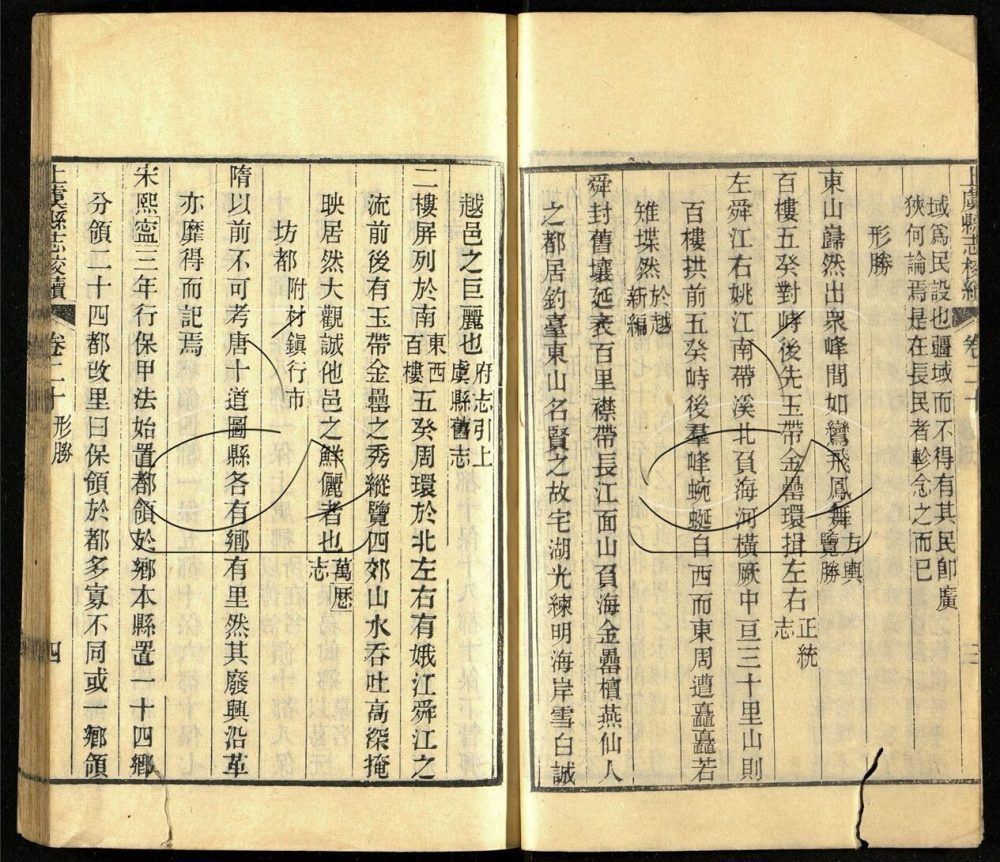 上虞縣志校續
卷二十
三
域爲民設也疆域而不得有其民即廣
狹何論焉是在長民者軫念之而已
形勝
東山巋然出衆峰間如鸞飛鳳舞方輿
覽勝
百樓五癸對峙後先玉帶金罍環揖左右正統
志
左舜江右姚江南帶溪北負海河橫厥中亘三十里山則
百樓拱前五癸峙後羣峰蜿蜒自西而東周遭矗矗若
雉堞然於越
新編
舜封舊壤延袤百里襟帶長江面山負海金罍檀燕仙人
之都居釣臺東山名賢之故宅湖光練明海岸雪白誠
越邑之巨麗也府志引上
虞縣舊志
二樓屏列於南東西
百樓五癸周環於北左右有娥江舜江之
流前後有玉帶金罍之秀縱覽四郊山水吞吐高深掩
映居然大觀誠他邑之鮮儷者也萬歷
志
坊都附村鎭行市
隋以前不可考唐十道圖縣各有鄉有里然其廢興沿革
亦靡得而記焉
宋熙寧三年行保甲法始置都領於鄉本縣置一十四鄉
分領二十四都改里曰保領於都多寡不同或一鄉領
上虞縣志校續
卷二十
形勝
四